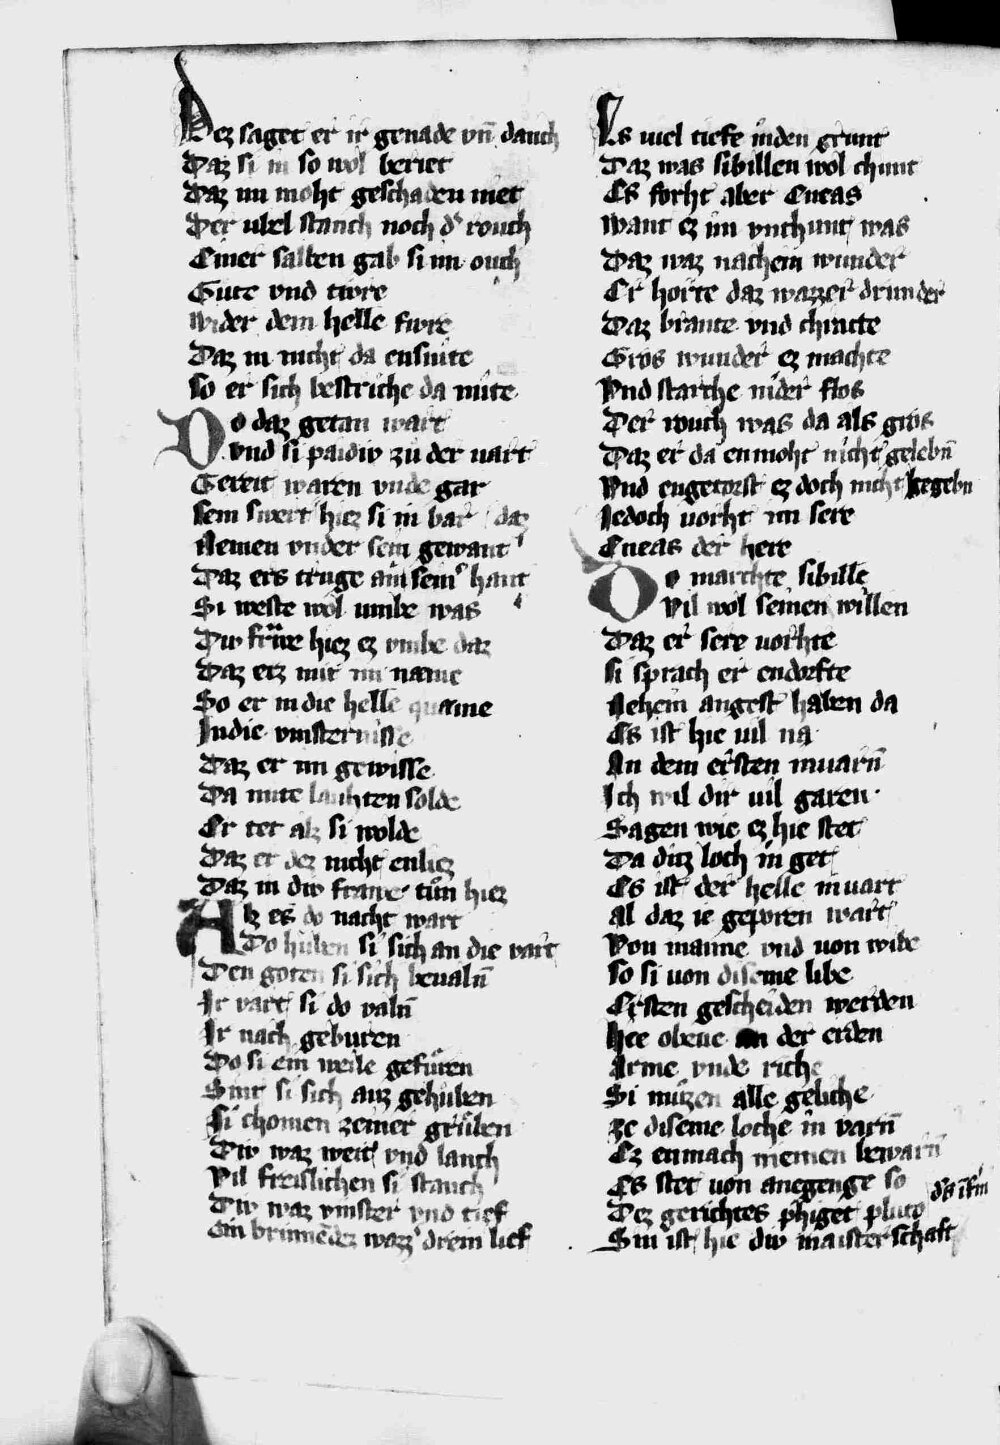 Dez saget er ir genade vn̄ danch
Daz si in so wol beriet
Daz im moht geschaden niet
Der ubel stanch noch d' rouch
Einer salben gab si im ouch
Gute vnd tiwre
wider dem helle fiwre
Daz in nicht da ensuite
so er sich bestriche da mite
Do daz getan wart
vnd si paidiv zů der uart
Gereit waren vnde gar
sein swert hiez si in bar daz
Nemen vnder sein gewant
Daz ers truge an sein' hant
Si weste wol umbe was
Div frůwe hiez ez vmbe daz
Daz erz mit im næme
So er in die helle quæme
In die vinsternisse
Daz er im gewisse
Da mite lauhten solde
Er tet alz si wolde
Daz er dez nicht enliez
Daz in div frawe tůn hiez
Alz es do nacht wart
Do huben si sich an die vart
Den goten si sich beualn̄
Ir vart si do valn̄
Ir nach geburen
Do si ein weile gefůren
Sint si sich auz gehůben
Si chomen zeiner grůben
Div waz weit vnd lanch
Vil freislichen si stanch
Div waz vinster vnd tief
Ein brinnēdez wazz' drein lief
Es viel tiefe in den grunt
Daz was sibillen wol chunt
Es forht aber Eneas
want ez im vnchunt was
Daz waz nachein wunder
Er horte daz wazzer drunder
Daz brante vnd chincte
Groz wunder ez machte
Vnd starche nider flos
Der wuch was da als gros
Daz er da enmoht nicht gelebn̄
Vnd engetorst ez doch nicht begebn
Jedoch uorht im sere
Eneas der here
Do marchte sibille
Vil wol seinen willen
Daz er sere uorhte
si sprach er endorfte
Nehein angest haben da
Es ist hie uil na
An dem ersten inuarn̄
Ich wil dir uil garen
Sagen wie ez hie stet
Da ditz loch in get
Es ist der helle inuart
Al daz ie geporen wart
Von manne vnd von wibe
so si von diseme libe
Ersten gescheiden werden
Hie obene an der erden
Arme vnde riche
Si můzen alle geliche
ze diseme loche in varn̄
Ez enmach niemen bewarn̄
Es stet von anegenge so
Dez gerichtes phliget pluto
Sin ist hie div maisterschaft